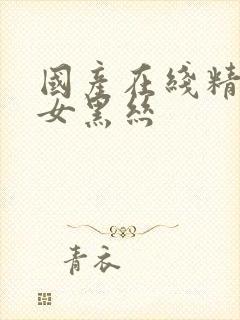 國產在綫精
女黑絲
青衣